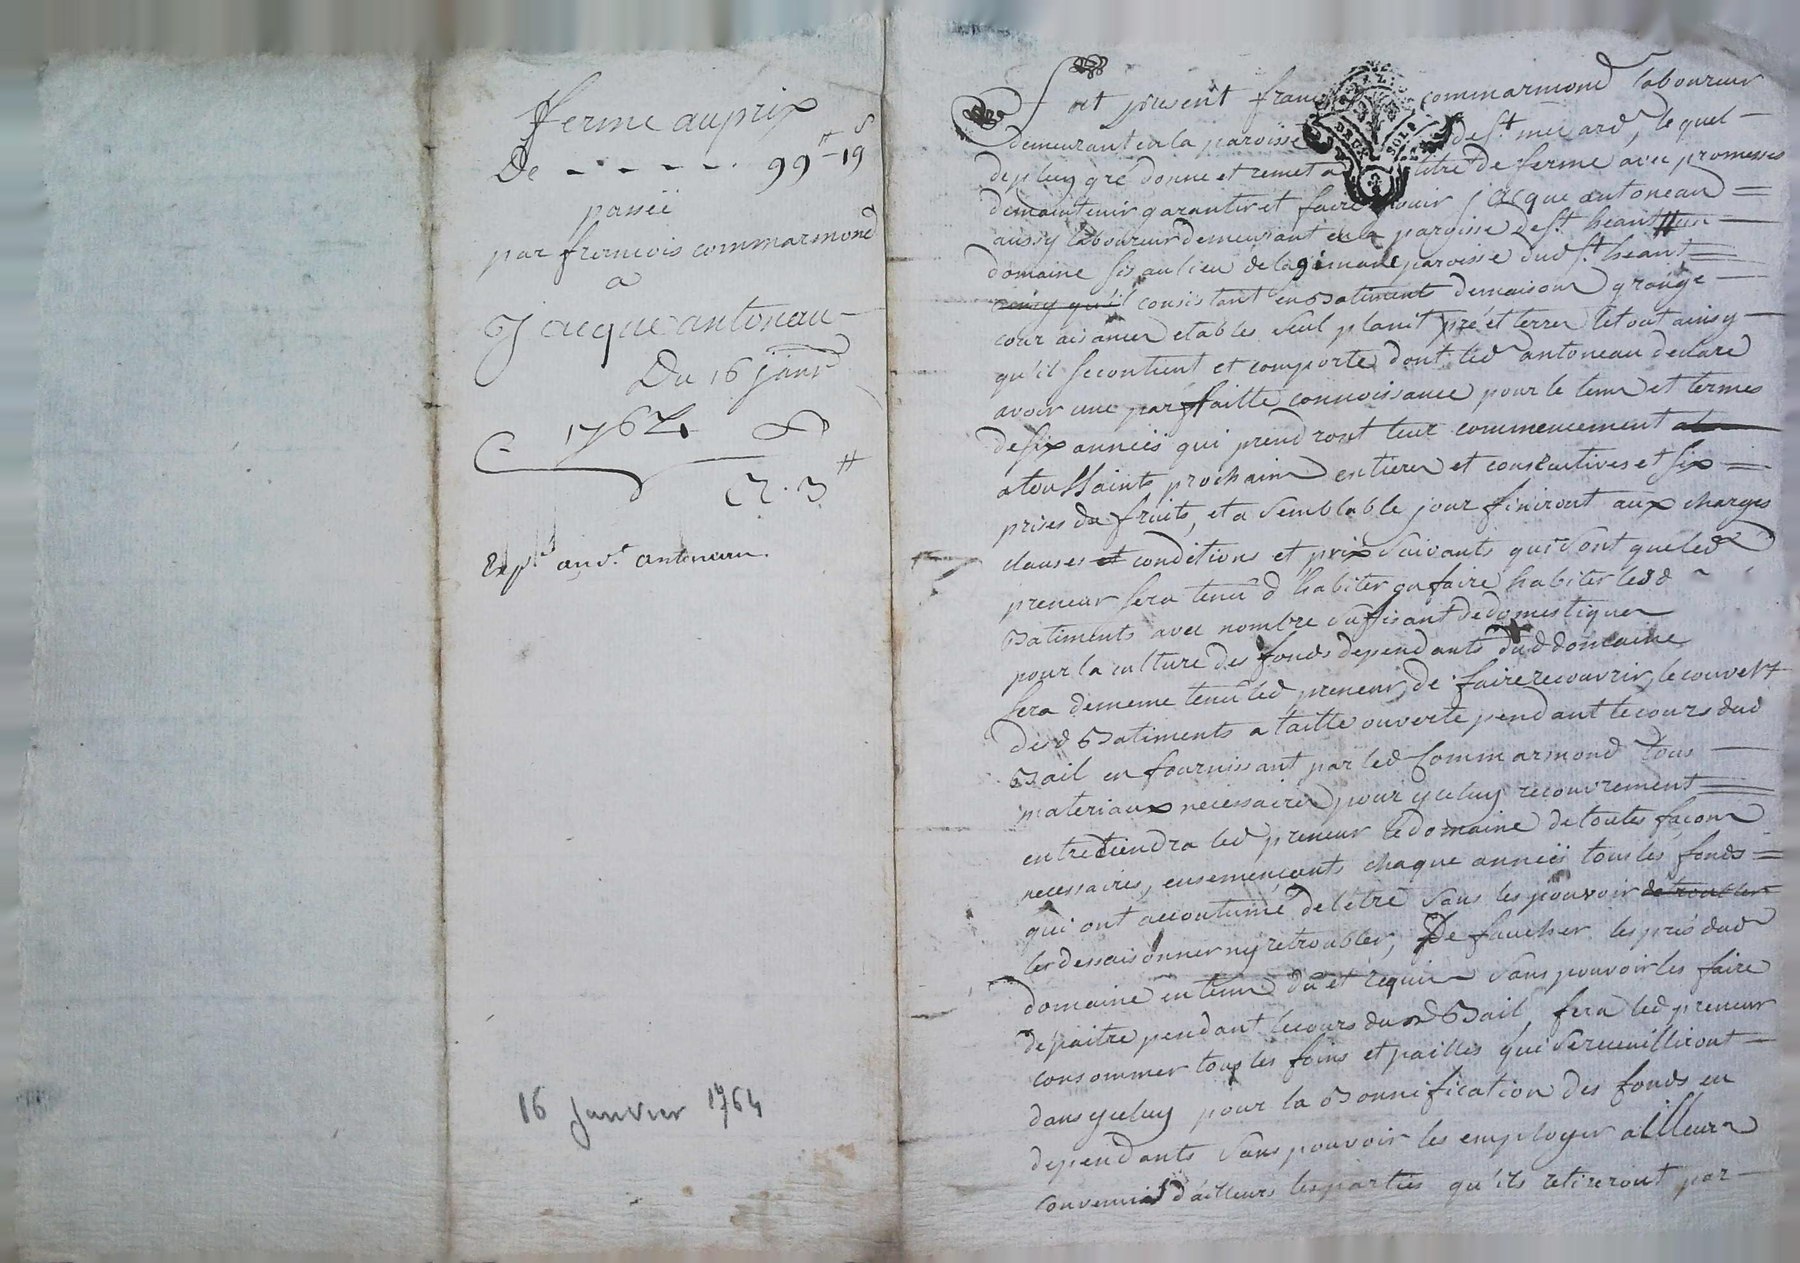 fferme au prix
De - - - - - . 99# - 19 s
passeé
par francois commarmond
a
Jacque antoneau
Du 16 janvr
1764
C. 3 #
Expes. aud.t antoneau.
16 Janvier 1764
fut present francois commarmond laboureur
demeurant en la paroisse de st. medard, lequel
de pluy gré donne et remet a titre de ferme avec promesses
de maintenir garantir et faire jouir jacque antoneau
aussy laboureur demeurant en la paroisse de st. heant un
domaine sis au lieu de la paroisse dud st. heant
ainsy qu'il consistant en Batiments de maison grange
cour aisances etables seul plant pré et terres le tout ainsy
qu'il se contient et comporte dont led antoneau declare
avoir une parfaitte connoissance pour le tems et termes
de six anneés qui prendront leur commencement
a toussaints prochain entieres et consecutives et six
prises de fruits, et a semblable jour finiront aux charges
clauses et conditions et prix suivants qui sont que led
preneur sera tenu d habiter ou faire habiter lesd
Batiments avec nombre suffisant de domestiques
pour la culture des fonds dependants dud domaine
sera de meme tenu led preneur de faire recouvrir le couvert
desd Batiments a taille ouverte pendant le cours dud
Bail en fournissant par led Commarmond tous
materiaux necessaires pour yceluy recouvrement
entretiendra led preneur le domaine de toutes facons
necessaires, ensemencants chaque anneé tous les fonds
qui ont accoutumé de l'etre sans les pouvoir detroubler
les dessaisonner ny retroubler, De faucher les prés dud
domaine en tems du et requis sans pouvoir les faire
depaitre pendant le cours dud Bail, fera led preneur
consommer tous les foins et pailles qui se recueilliront
dans yceluy pour la Bonnification des fonds en
dependants sans pouvoir les employer ailleurs
convenus d'ailleurs les parties qu'ils retireront par